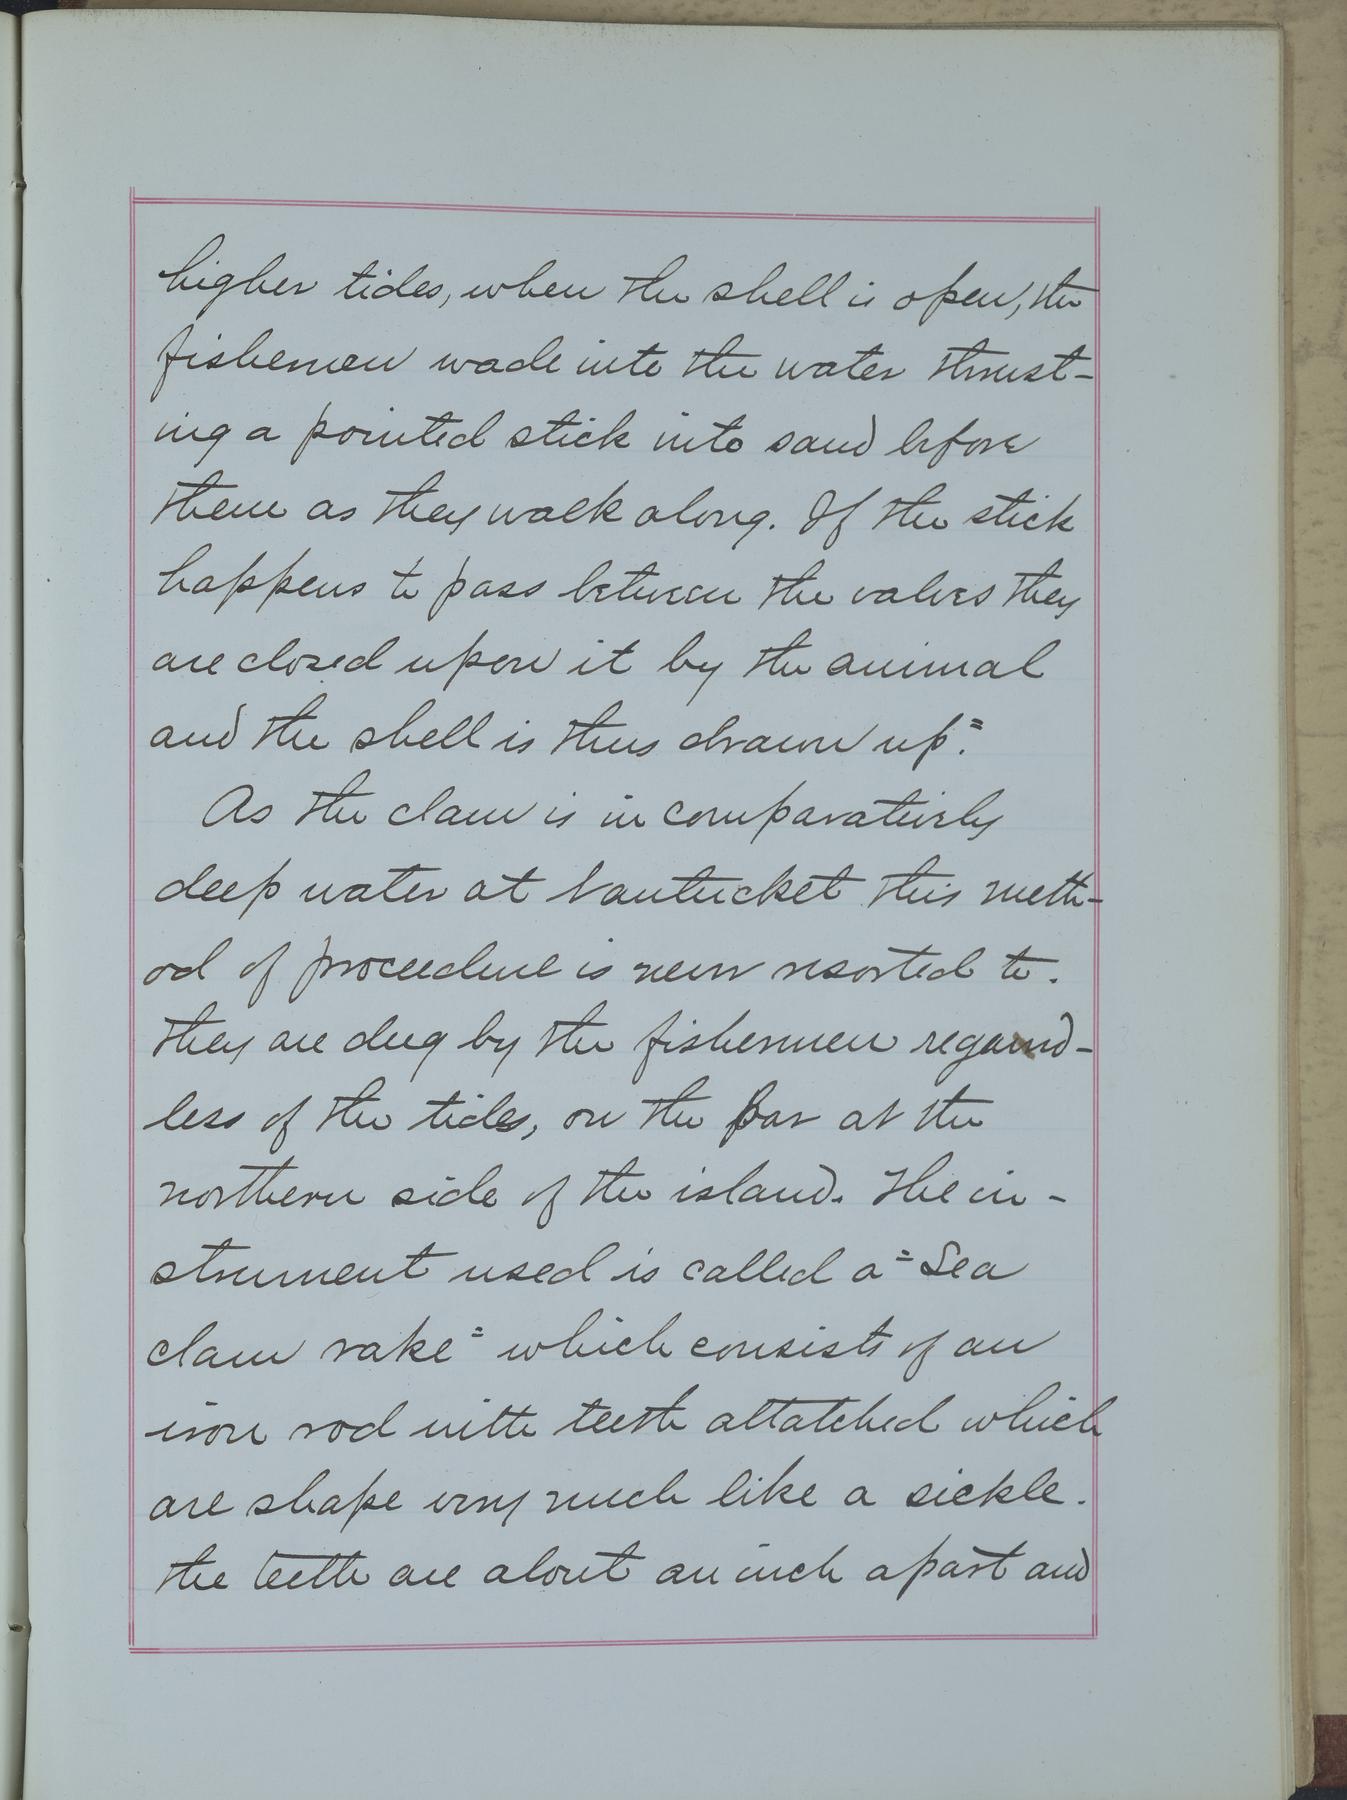 higher tides, when the shell is open, the
fishermen wade into the water thrust-
ing a pointed stick into sand before
them as they walk along. If the stick
happens to pass between the valves they
are closed upon it by the animal
and the shell is thus drawn up".
As the clam is in comparatively
deep water at Nantucket this meth-
od of proceedure is never resorted to.
They are dug by the fishermen regard-
less of the tides, on the bar at the
northern side of the island. The in-
strument used is called a "Sea
clam rake" which consists of an
iron rod with teeth attatched which
are shape very much like a sickle.
The teeth are about an inch apart and